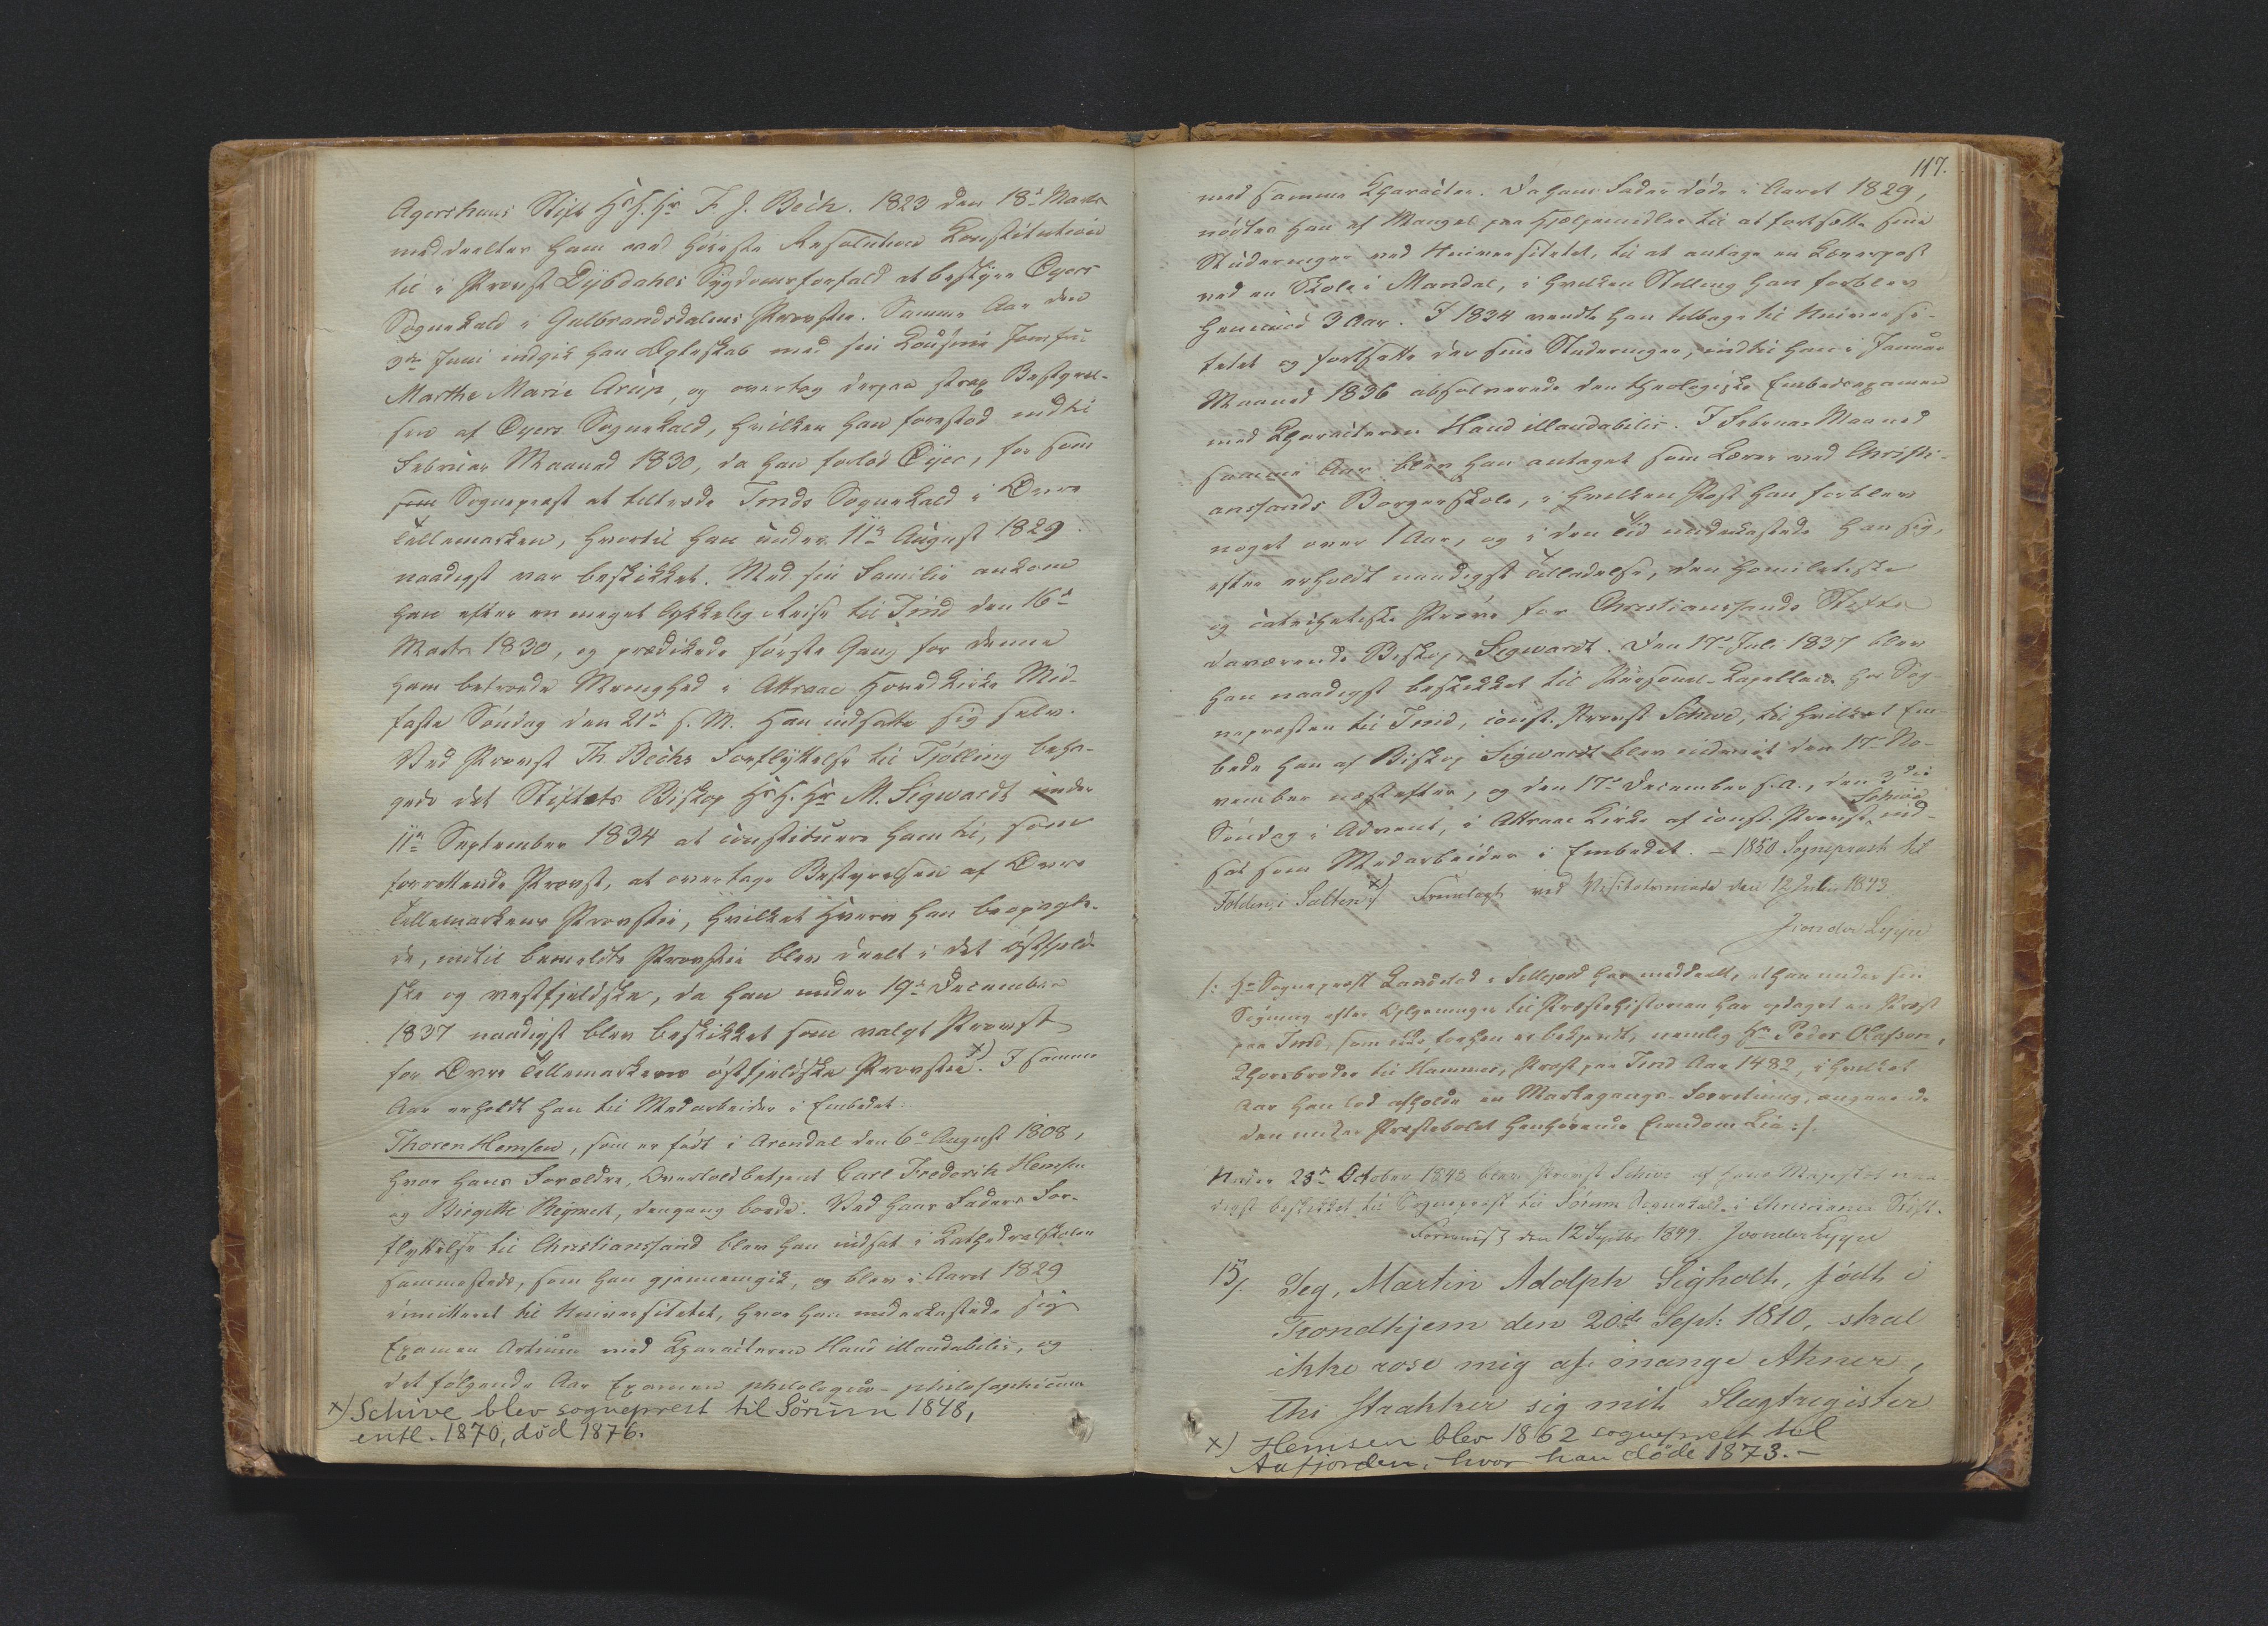 Agershuus Stift HsH. Hr F. J. Bech. 1823 den 18de Marts
meddeeltes ham ved höieste Resolution Constitution
til i Provst Dybdahls Sygdomsforfald at bestyre Öyers
Sognekald i Gulbrandsdalens Provstie. Samme Aar den
Juni indgik han Ægteskab med sin Cousine Jomfru
Marthe Marie Arup, og overtog derpaa strax Bestyrel-
sen af Öyers Sognekald, hvilken han forestod indtil
Februar Maaned 1830, da han forlod Öyer, for som
som Sogneprest at tiltræde Tinds Sognekald i Övre
Tellemarken, hvortil han under 11te August 1829
naadigst var beskikket. Med sin Familie ankom
han efter en meget lykkelig Reise til Tind den 16de
Marts 1830, og prædikede første Gang for denne
ham betroede Menighed i Attraae Hovedkirke Mid-
faste Söndag den 21de s. M. Han indsatte sig selv.
Ved Provst Th. Bechs Forflyttelse til Tjölling beha-
gede det Stiftets Biskop HsH. Hr M. Sigwardt under
11te September 1834 at constituere ham til, som
forrettende Provst, at overtage Bestyrelsen af Övre
Tellemarkens Provstie, hvilket Hverv han beopagte-
de, indtil bemeldte Provstie blev deelt i det östfjeld-
ske og vestfjeldske, da han under 19de December
1837 naadigst blev beskikket som valgt Provst
for Övre Tellemarkens östfjeldske Provstie. x) I samme
Aar erholdt han til Medarbeider i Embedet:
Thoren Hemsen, som er födt i Arendal den 6te August 1808,
hvor hans Forældre, Overtoldbetjent Carl Frederik Hemsen
og Birgitte Reymert, dengang boede. Ved hans Faders For-
flyttelse til Christianssand blev han indsat i Cathedralskolen
sammesteds, som han gjennemgik, og blev i Aaret 1829
dimitteret til Universitetet, hvor han underkastede sig
Examen Artium med Characteren Haud illaudabilis, og
det følgende Aar Examen philologico-philosophicum
x) Schive blev sogneprest til Sörum 1848,
entl. 1870, död 1876.
117.
med samme Character. Da hans Fader döde i Aaret 1829,
nödtes han af Mangel paa Hjælpemidler til at fortsætte sine
Studeringer ved Universitetet, til at antage en Lærerpost
ved en Skole i Mandal, i hvilken Stilling han forblev
henimod 3 Aar. I 1834 vendte han tilbage til Universi-
tetet og fortsatte der sine Studeringer, indtil han i Januar
Maaned 1836 absolverede den theologiske Embedsexamen
med Characteren Haud illaudabilis. I Februar Maaned
samme Aar blev han antaget som Lærer ved Christi-
anssands Borgerskole, i hvilken Post han forblev
noget over 1 Aar, og i den Tid underkastede han sig,
efter erholdt naadigst Tilladelse, den homiletiske
og catechetiske Pröve for Christianssands Stifts
daværende Biskop, Sigwardt. Den 17de Juli 1837 blev
han naadigst beskikket til Personel-Capellan hos Sog-
nepresten til Tind, const. Provst Schive, til hvilket Em-
bede han af Biskop Sigwardt blev indviet den 17de No-
vember næstefter, og den 17de December s. a., den 3die
Söndag i Advent, i Attraae Kirke af const. Provst Schive ind-
sat som Medarbeider i Embedet. – 1850 Sogneprest til
Folden i Salten x) Fremlagt ved Visitatsmöde den 12 Juli 1843
J von der Lippe
/: Hr Sogneprest Landstad i Sillejord har meddeelt, at han under sin
Sögning efter Oplysninger til Prestehistorien har opdaget en Prest
paa Tind, som ikke forhen er bekjendt, nemlig Hr Peder Olafson,
Chorsbroder til Hammer, Prest paa Tind Aar 1482, i hvilket
Aar han lod afholde en Markagangs-Forretning, angaaende
den under Prestebolet henhörende Eiendom Lia :/.
Under 23de October 1848 blev Provst Schive af Hans Majestæt naa-
digst beskikket til Sogneprest til Sörum Sognekald i Christiania Stift.
Forevist den 12 Septbr 1849. J von der Lippe
15/. Jeg, Martin Adolph Sigholt, födt i
Trondhjem den 20de Sept: 1810, skal
ikke rose mig af mange Ahner,
thi strækker sig mit Slagtregister
x) Hemsen blev 1862 sogneprest til
Aafjorden, hvor han döde 1873. –